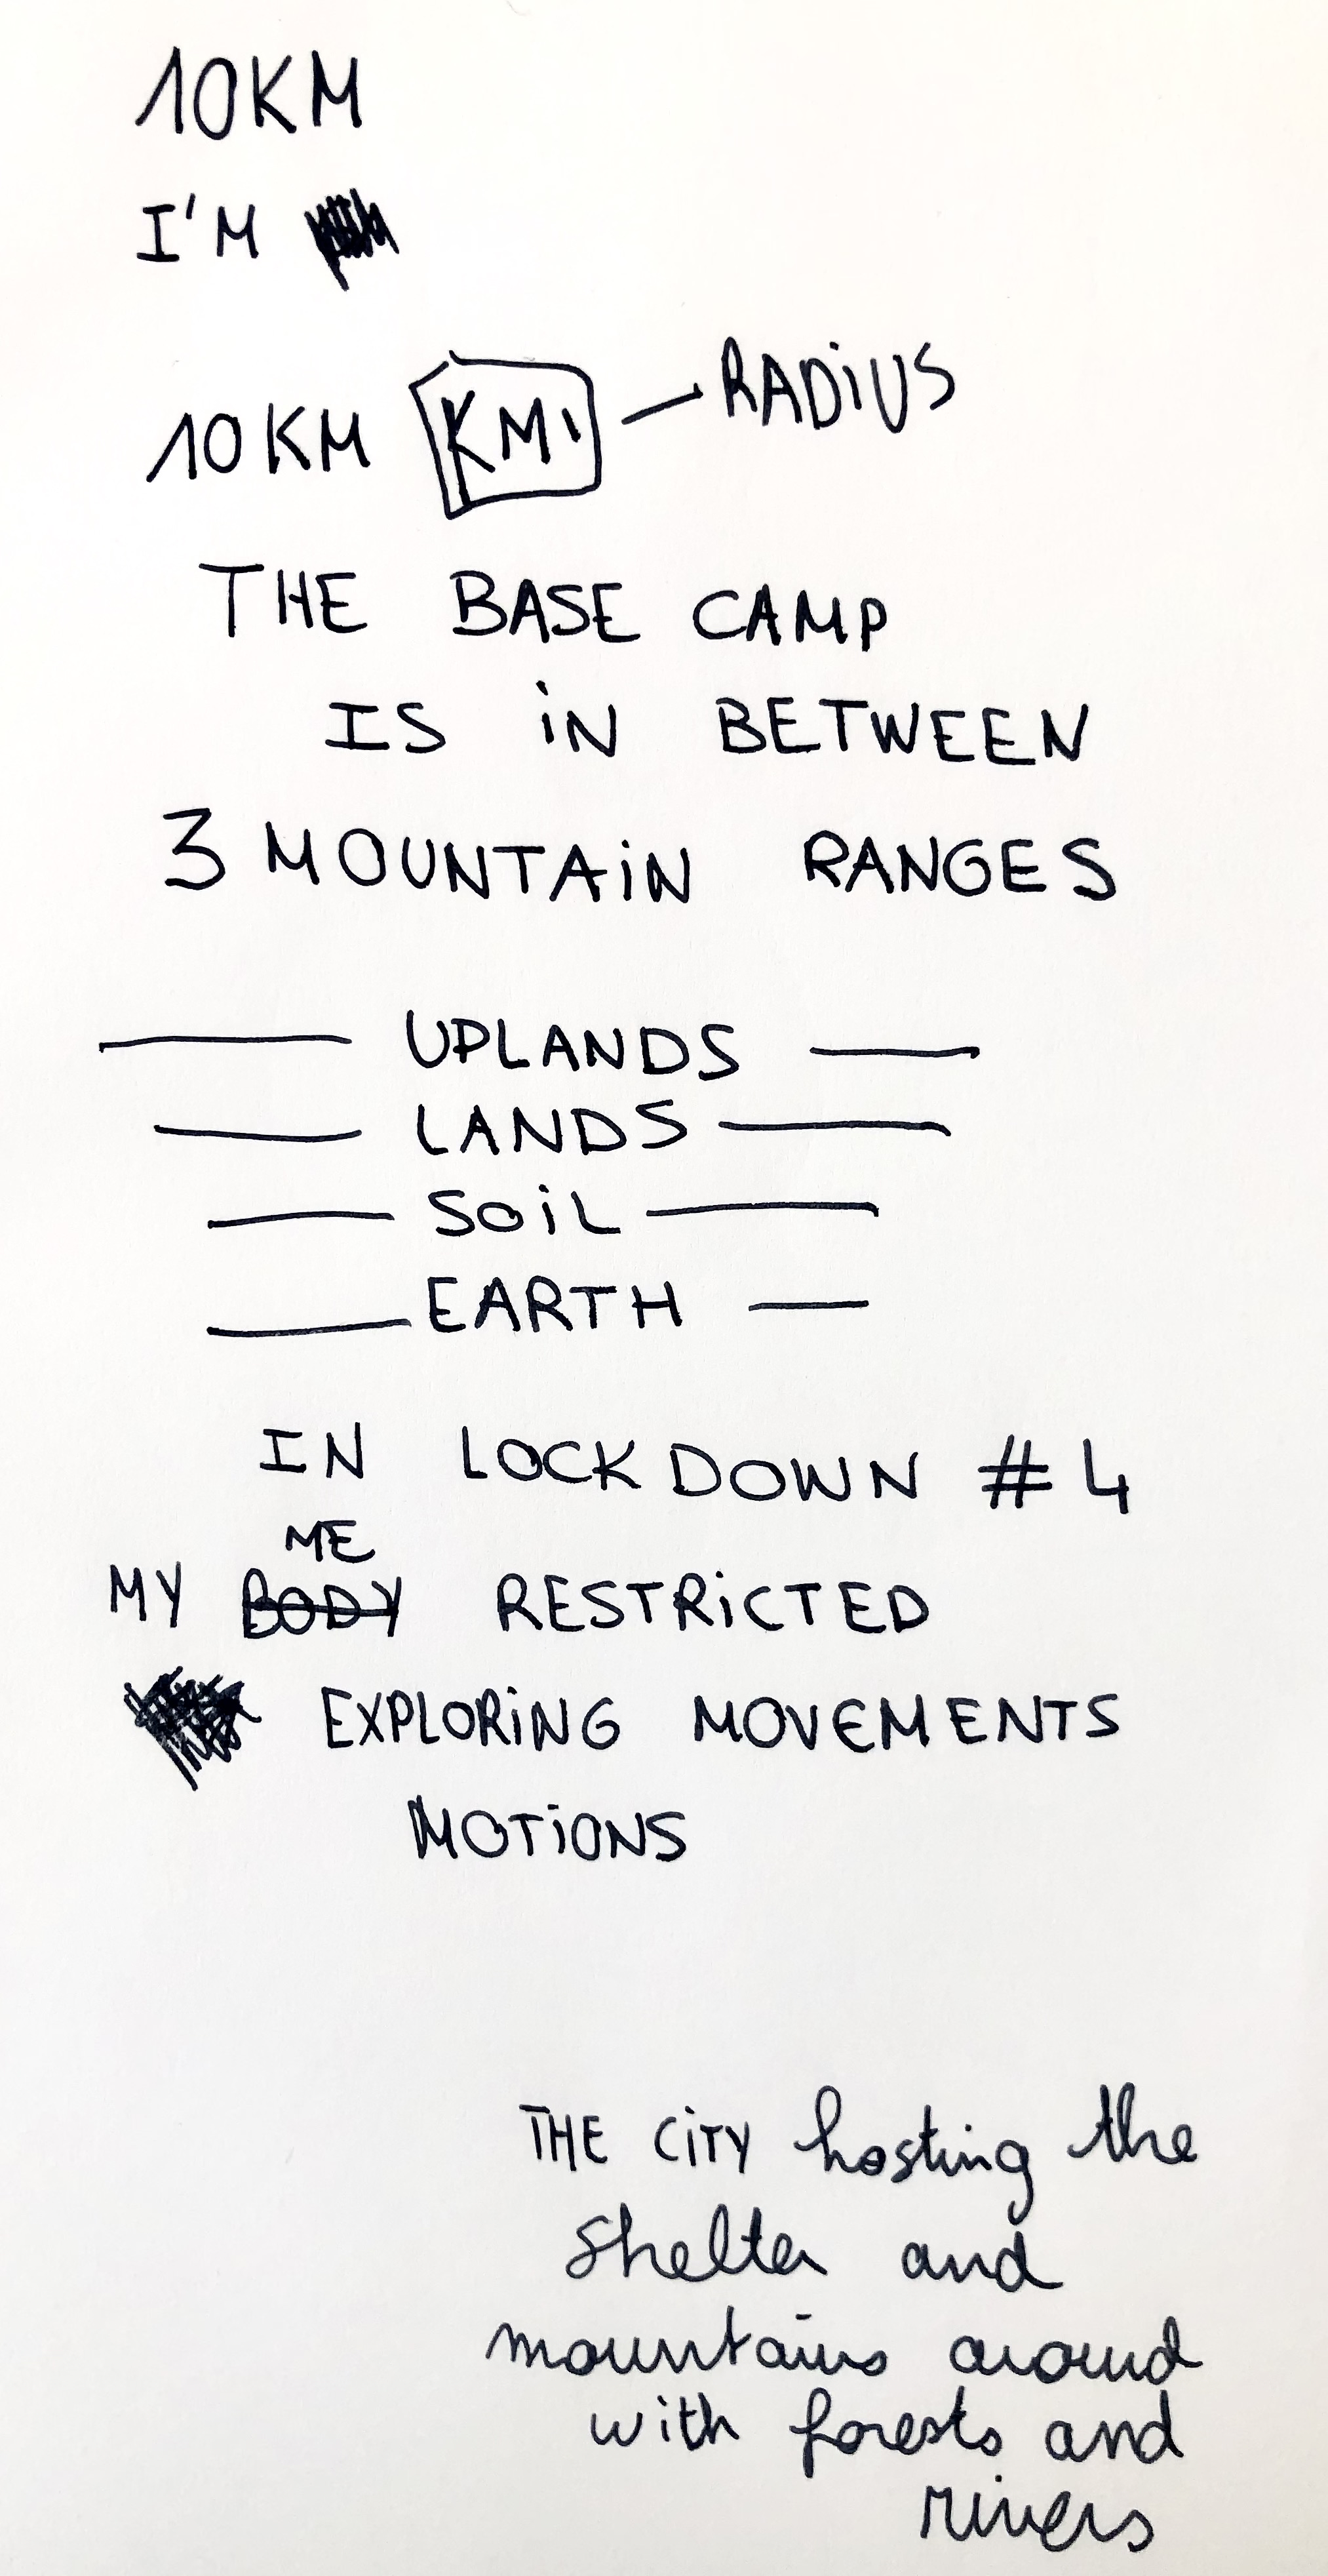 10KM
I'M
10KM KM' — RADiUS
THE BASE CAMP
IS iN BETWEEN
3 MOUNTAiN RANGES
——— UPLANDS ———
——— LANDS ———
——— SOiL ———
——— EARTH ———
IN LOCKDOWN #4
ME
MY BODY RESTRiCTED
EXPLORiNG MOVEMENTS
MOTiONS
THE CiTY hosting the
shelter and
mountains around
with forests and
rivers